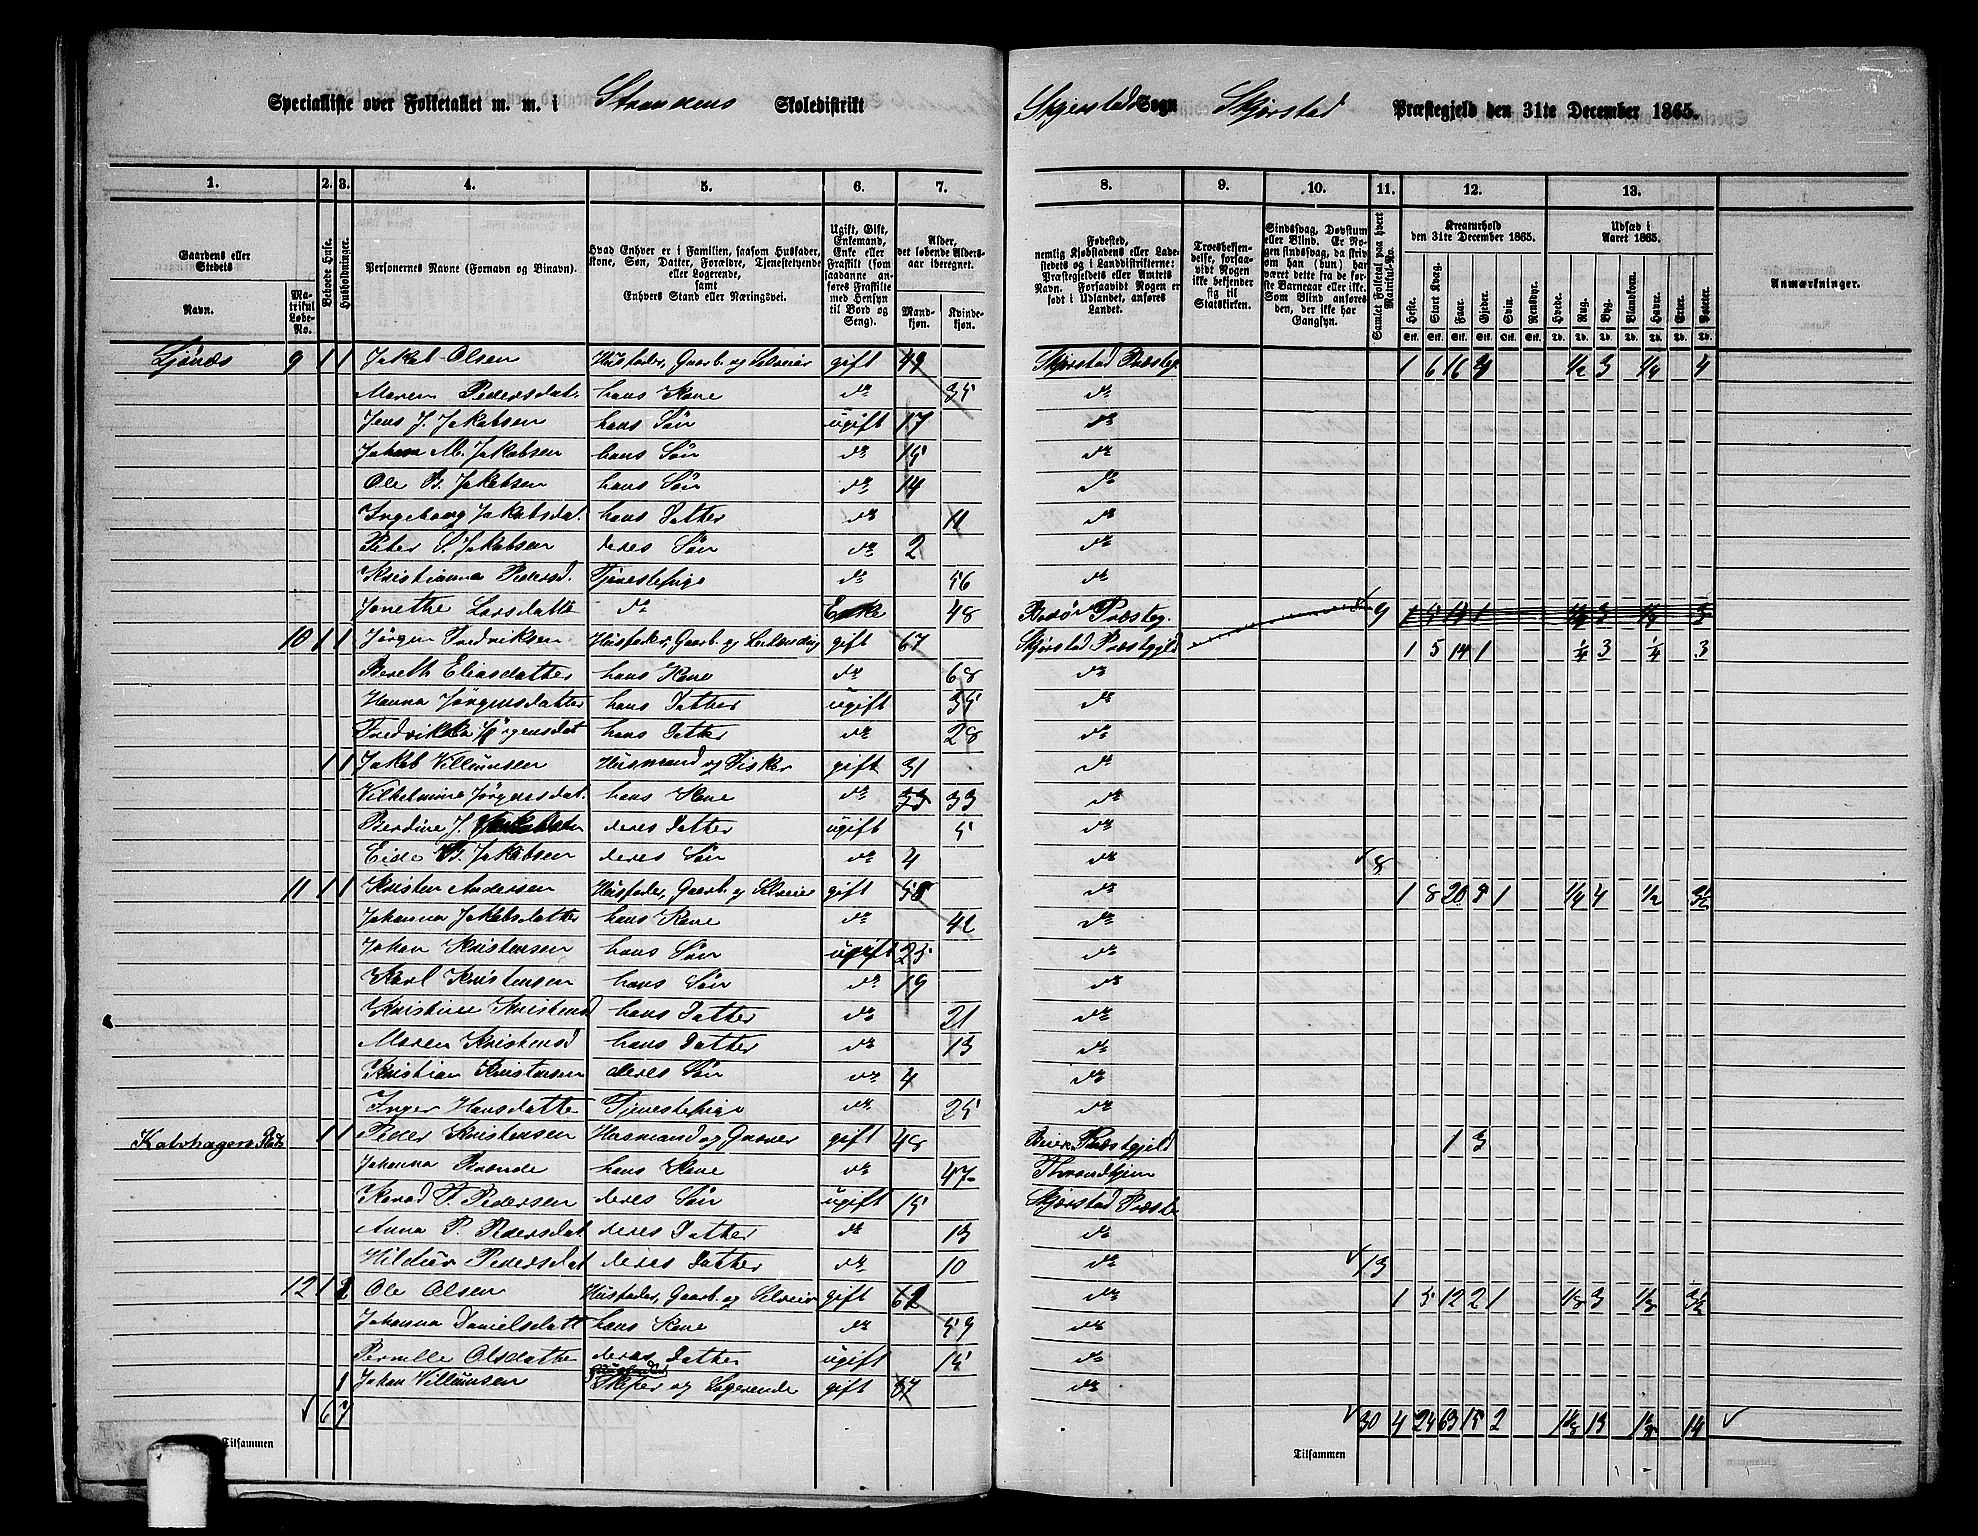 Specialliste over Folketallet m. m. i Strandens Skoledistrikt Skjerstad Sogn Skjerstad Præstegjeld den 31te December 1865.
1. 2. 3. 4. 5. 6. 7. 8. 9. 10. 11. 12. 13.
Gaardens eller Stedets
Navn. Matrikul Løbe-No.
Beboede Huse.
Husholdninger.
Personernes Navne (Fornavn og Binavn).
Hvad Enhver er i Familien, saasom Husfader, Kone, Søn, Datter, Forældre, Tjenestetyende eller Logerende, samt Enhvers Stand eller Næringsvei.
Ugift, Gift, Enkemand, Enke eller Fraskilt (som saadanne anføres Fraskilte med Hensyn til Bord og Seng).
Alder, det løbende Aldersaar iberegnet.
Mandkjøn. Kvindekjøn.
Fødested, nemlig Kjøbstadens eller Ladestedets og i Landdistrikterne: Præstegjeldets eller Amtets Navn. Forsaavidt Nogen er født i Udlandet, anføres Landet.
Troesbekjendelse, forsaavidt Nogen ikke bekjender sig til Statskirken.
Sindssvag, Døvstum eller Blind. Er Nogen sindssvag, da anføres om han (hun) har været dette fra de første Barneaar eller ikke. Som Blind anføres den, der ikke har Gangsyn.
Samlet Folketal paa hvert Matrikul-No.
Kreaturhold den 31te December 1865.
Heste. Stort Kvæg. Faar. Gjeder. Sviin. Rensdyr.
Udsæd i Aaret 1865.
Hvede. Rug. Byg. Blandkorn. Havre. Erter. Poteter.
Anmærkninger.
9 1 1 Jakob Olsen Husfader, Gaarb. og Selveier gift 49 Skjerstad Præstegj. 1 6 16 1/2 3 1/4 4
Maren Pedersdat. hans Kone do 35 do
Jens J. Jakobsen hans Søn ugift 17 do
Johan M. Jakobsen hans Søn do 15 do
Ole B. Jakobsen hans Søn do 14 do
Ingeborg Jakobsdat. hans Datter do 11 do
Peter S. Jakobsen deres Søn do 2 do
Kristianna Pedersd. Tjenestepige do 56 do
Jonethe Larsdatte do Enke 48 Præsteg. 9
10 1 1 Jørgen Fredriksen Husfader, Gaarb. og gift 67 Skjerstad Præstegjeld 1 5 14 1 1/4 3 1/4 3
Bereth Eliasdatter hans Kone do 68 do
Hanna Jørgensdatter hans Datter ugift 35 do
Fredrikka Jørgensdat hans Datter do 28 do
1 1 Jakob Villumsen Husmand og Fisker gift 31 do
Vilhelmine Jørgensdat. hans Kone do 33 33 do
Berdine J. deres Datter ugift 5 do
Eide B. Jakobsen deres Søn do 4 do 8
11 1 1 Kristen Andersen Husfader, Gaarb. og Selveier gift 58 do 1 8 20 5 1 1/4 4 1/2 3 1/2
Johanna Jakobsdatter hans Kone do 42 do
Johan Kristensen hans Søn ugift 25 do
Karl Kristensen hans Søn do 19 do
Kristine Kristensd hans Datter do 21 do
Maren Kristensd hans Datter do 13 do
Kristian Kristensen deres Søn do 4 do
Inger Hansdatte Tjenestepige do 25 do
Kalvhagen Plads 1 1 Peder Kristensen Husmand og gift 48 Beiern Præstgjeld 1 3
Johanna hans Kone do 47 Throndhjem
Konrad P. Pedersen deres Søn ugift 15 Skjerstad Præste
Anna P. Pedersdat deres Datter do 13 do
Hildur Pedersdat deres Datter do 10 do 13
12 1 2 Ole Olsen Husfader, Gaarb. og Selveier gift 62 do 1 5 12 2 1 1/8 3 1/8 3 1/2
Johanna Danielsdatt hans Kone do 59 do
Pernille Olsdatter deres Datter ugift 15 do
1 Johan Villumsen og Logerende gift 67 do
6 7 Tilsammen 30 4 24 63 15 2 13 14
Tilsammen